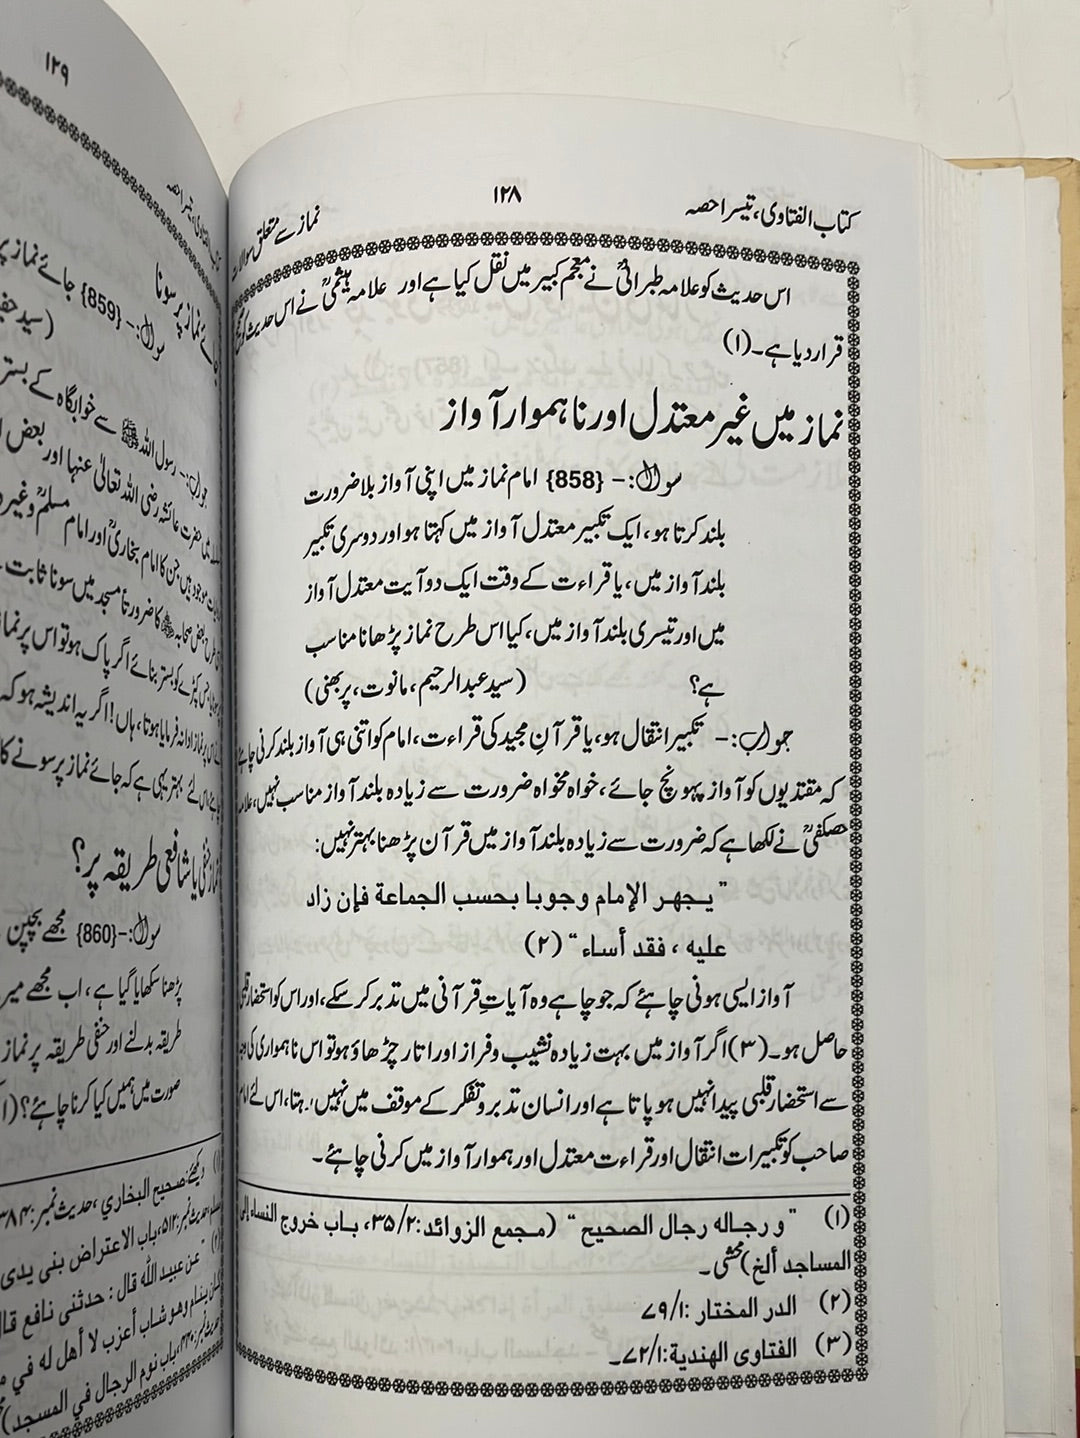 کتاب الفتاوی، تیسرا حصہ
۱۲۸
نماز سے متعلق سوالات
اس حدیث کو علامہ طبرانیؒ نے معجم کبیر میں نقل کیا ہے اور علامہ ہیثمیؒ نے اس حدیث کو صحیح
قرار دیا ہے۔(۱)
نماز میں غیر معتدل اور ناہموار آواز
سوال:- {858} امام نماز میں اپنی آواز بلا ضرورت
بلند کرتا ہو، ایک تکبیر معتدل آواز میں کہتا ہو اور دوسری تکبیر
بلند آواز میں، یا قراءت کے وقت ایک دو آیت معتدل آواز
میں اور تیسری بلند آواز میں، کیا اس طرح نماز پڑھانا مناسب
ہے؟ (سید عبدالرحیم، مانوت، پربھنی)
جواب:- تکبیر انتقال ہو، یا قرآنِ مجید کی قراءت، امام کو اتنی ہی آواز بلند کرنی چاہئے
کہ مقتدیوں کو آواز پہونچ جائے، خواہ مخواہ ضرورت سے زیادہ بلند آواز مناسب نہیں، علامہ
حصکفیؒ نے لکھا ہے کہ ضرورت سے زیادہ بلند آواز میں قرآن پڑھنا بہتر نہیں:
" يجهر الإمام وجوبا بحسب الجماعة فإن زاد
عليه ، فقد أساء " (۲)
آواز ایسی ہونی چاہئے کہ جو چاہے وہ آیاتِ قرآنی میں تدبر کر سکے، اور اس کو استحضار قلبی
حاصل ہو۔(۳) اگر آواز میں بہت زیادہ نشیب و فراز اور اتار چڑھاؤ ہو تو اس ناہمواری کی وجہ
سے استحضار قلبی پیدا نہیں ہو پاتا ہے اور انسان تدبر و تفکر کے موقف میں نہیں رہتا، اس لئے امام
صاحب کو تکبیرات انتقال اور قراءت معتدل اور ہموار آواز میں کرنی چاہئے۔
(۱) " و رجاله رجال الصحيح " (مجمع الزوائد:۳۵/۲، باب خروج النساء إلى
المساجد ألخ) محشی۔
(۲) الدر المختار :۷۹/۱
(۳) الفتاوى الهندية:۷۲/۱۔
۱۲۹
نماز پر سونا
سوال:- {859} جائے نماز پر
جواب:- رسول اللہ ﷺ سے خوابگاہ کے بستر
حضرت عائشہ رضی اللہ تعالیٰ عنہا اور بعض
موجود ہیں جن کا امام بخاریؒ اور امام مسلمؒ وغیرہ
بعض صحابہ ﷺ کا ضرورتاً مسجد میں سونا ثابت
کپڑے کو بستر بنائے اگر پاک ہو تو اس پر نماز
نماز ادا نہ فرمایا ہوتا، ہاں! اگر یہ اندیشہ ہو کہ
بہتر یہی ہے کہ جائے نماز پر سونے کا
نماز حنفی یا شافعی طریقہ پر؟
سوال:- {860} مجھے بچپن
پڑھنا سکھایا گیا ہے، اب مجھے میر
طریقہ بدلنے اور حنفی طریقہ پر نماز
صورت میں ہمیں کیا کرنا چاہئے؟
(۱) دیکھئے: صحیح البخاري، حدیث نمبر: ۳۸۴
حدیث نمبر: ۵۱۲، باب الاعتراض بنى يدى
(۲) " عن عبيد الله قال : حدثنى نافع قال
ينام وهو شاب أعزب لا أهل له في
باب نوم الرجال في المسجد)